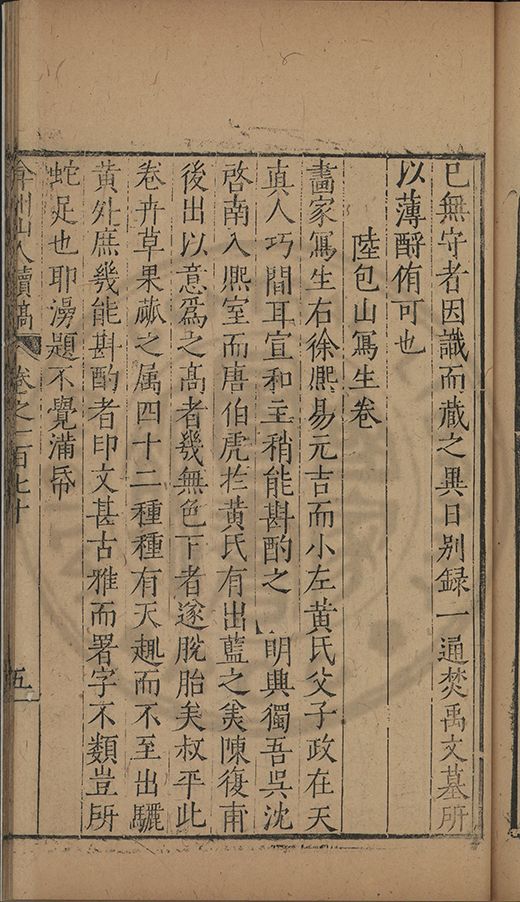 已無守者因識而藏之異日别録一通焚禹文墓所
以薄酹侑可也
陸包山冩生卷
畵家冩生右徐熈易元吉而小左黄氏父子政在天
真人巧間耳宣和主稍能斟酌之明興獨吾吳沈
啓南入熈室而唐伯虎於黄氏有出藍之美陳復甫
後出以意爲之髙者幾無色下者遂脱胎矣叔平此
卷卉草果蓏之属四十二種種有天趣而不至出驪
黄外庶幾能斟酌者印文甚古雅而署字不類豈所
蛇足也耶漫題不覺滿帋
弇州山人續稿 卷之一百七十 五